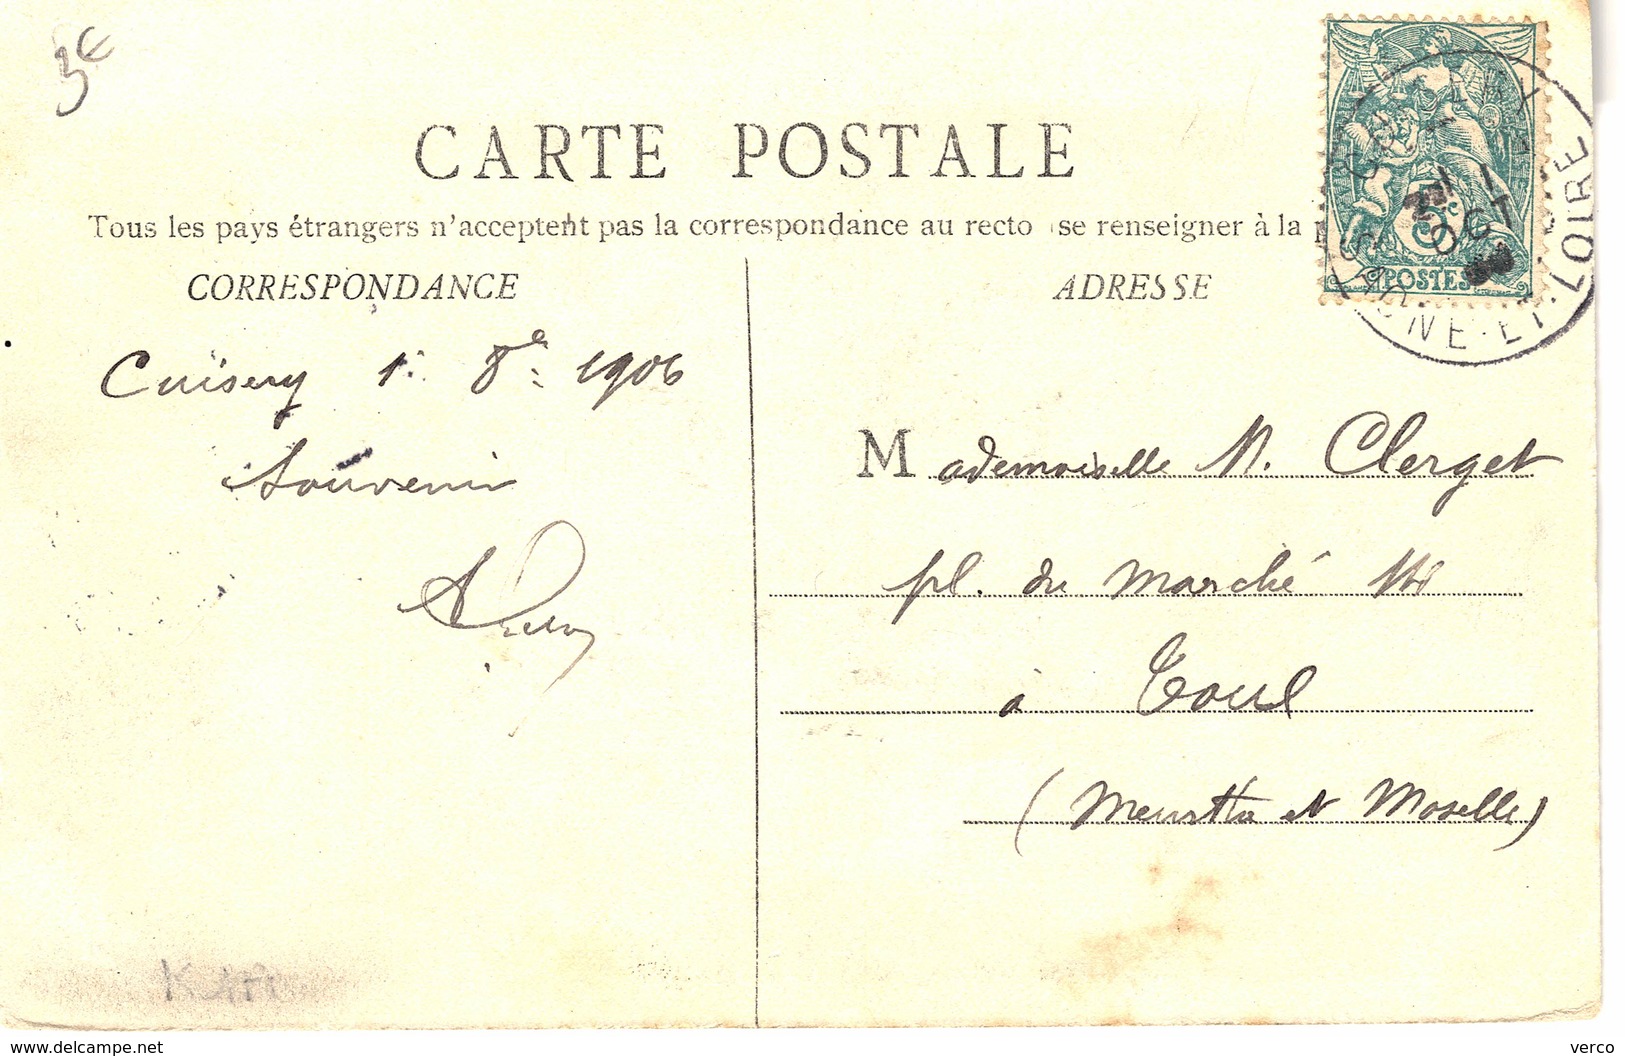 3€
CARTE POSTALE
Tous les pays étrangers n'acceptent pas la correspondance au recto se renseigner à la
CORRESPONDANCE
ADRESSE
5c
POSTES
OCT
SAONE-ET-LOIRE
Cuisery 1. 8e 1906
Souvenir
Mademoiselle M. Clerget
pl. du Marché
à Toul
(Meurthe et Moselle)
www.delcampe.net
verco